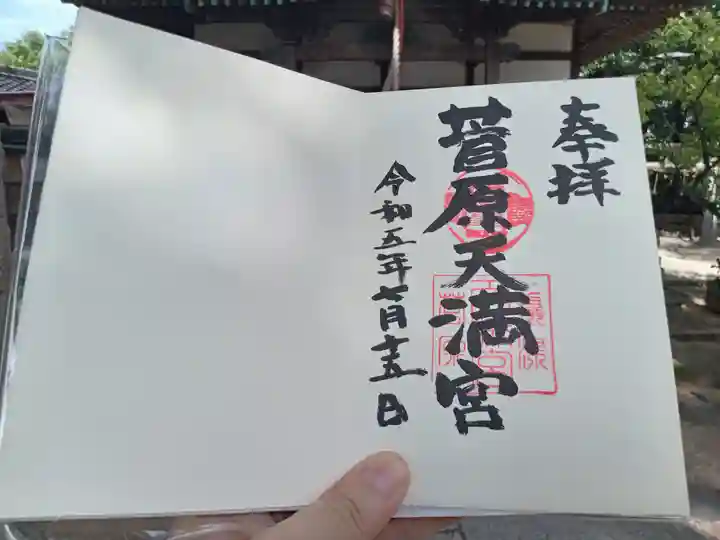 奉拝
菅原天満宮
令和五年七月十五日